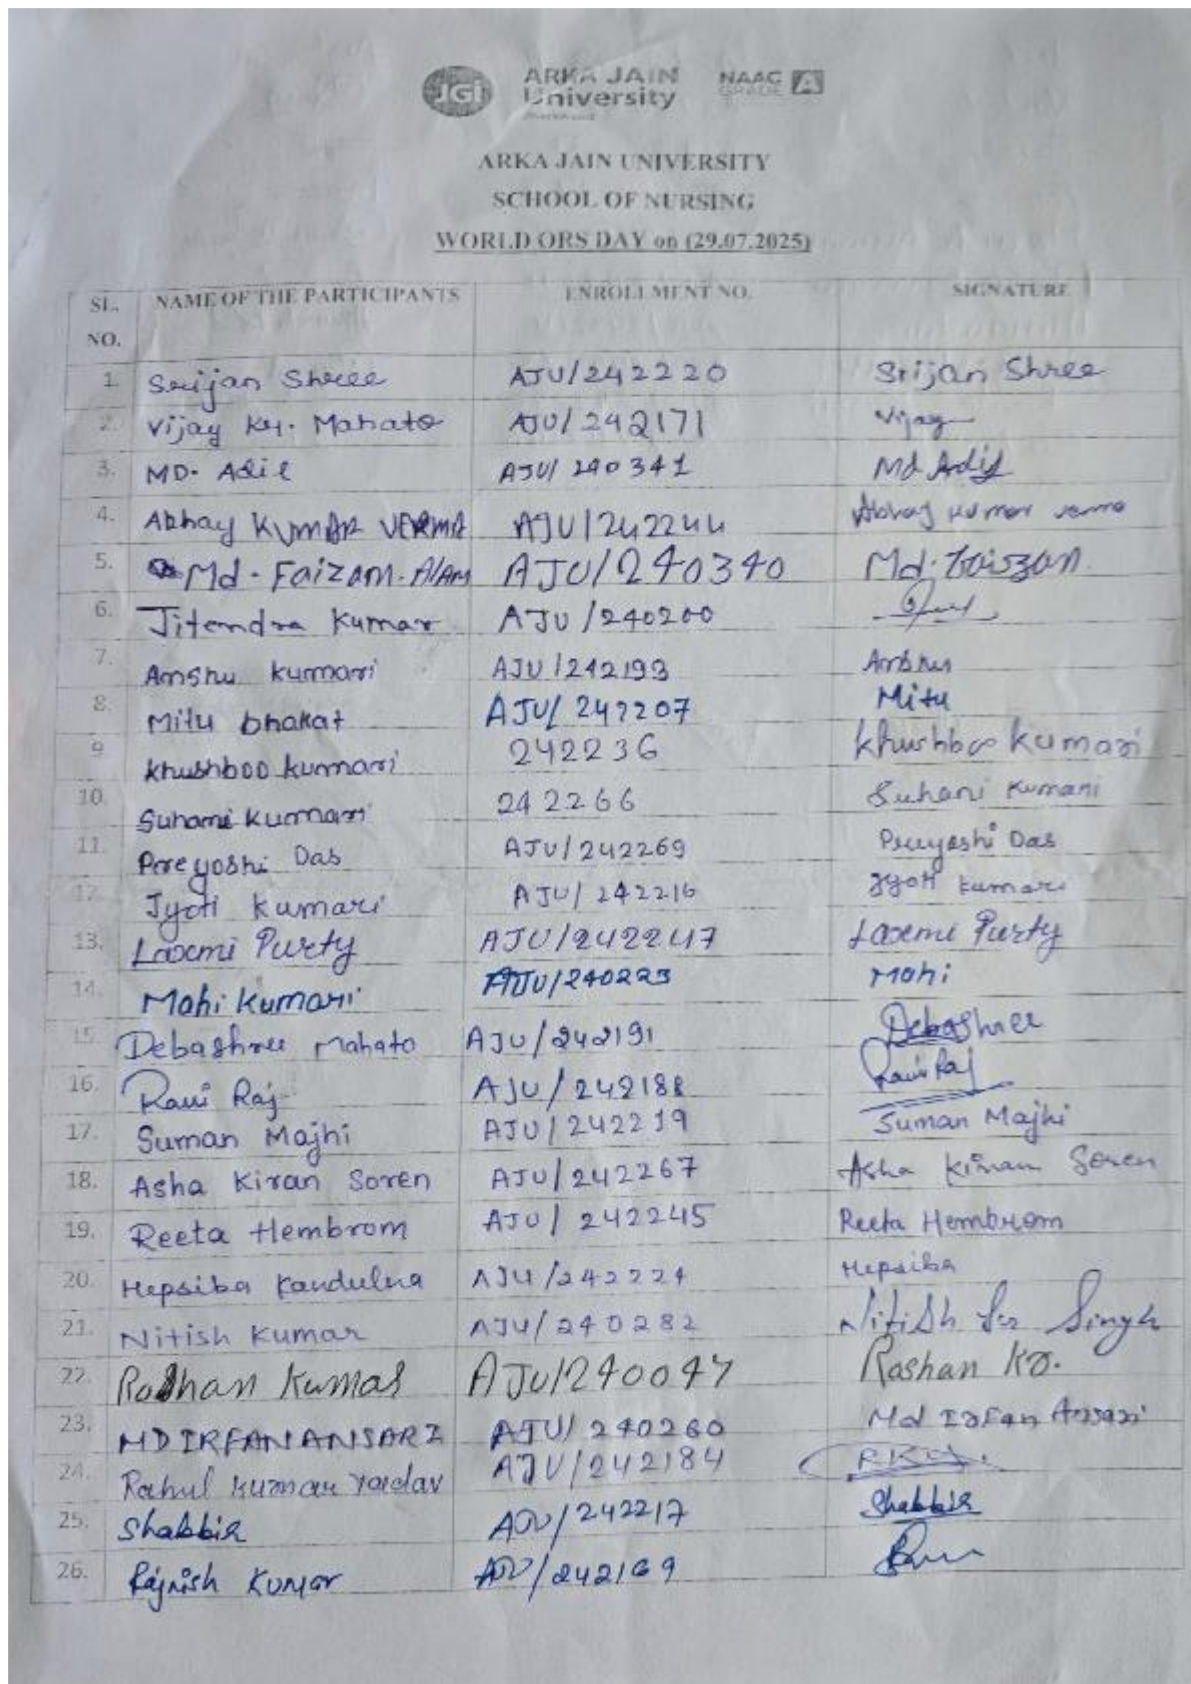 JGi ARKA JAIN University NAAC GRADE A
ARKA JAIN UNIVERSITY
SCHOOL OF NURSING
WORLD ORS DAY on (29.07.2025)
SL. NO. NAME OF THE PARTICIPANTS ENROLLMENT NO. SIGNATURE
1. Srijan Shree AJU/242220 Srijan Shree
2. Vijay Kr. Mahato AJU/242171 Vijay
3. MD. Adil AJU/240341 Md Adil
4. Abhay KUMAR VERMA AJU/242244 Abhay kumar verma
5. Md. Faizam. Alam AJU/240340 Md. Faizan
6. Jitendra Kumar AJU/240200
7. Anshu kumari AJU/242193 Anshu
8. Mitu bhakat AJU/242207 Mitu
9 khushboo kumari 242236 khushboo kumari
10. Suhani kumari 242266 Suhani Kumari
11. Preyoshi Das AJU/242269 Preyoshi Das
12. Jyoti kumari AJU/242216 Jyoti kumari
13. Laxmi Purty AJU/242247 Laxmi Purty
14. Mahi Kumari AJU/240223 Mahi
15. Debashree Mahato AJU/242191 Debashree
16. Ravi Raj AJU/242188 Ravi Raj
17. Suman Majhi AJU/242219 Suman Majhi
18. Asha Kiran Soren AJU/242267 Asha Kiran Soren
19. Reeta Hembrom AJU/242245 Reeta Hembrom
20. Hepsiba Kandulna AJU/242224 Hepsiba
21. Nitish Kumar AJU/240282 Nitish Kr Singh
22. Roshan Kumar AJU/240047 Roshan Kr.
23. MD IRFAN ANSARI AJU/240260 Md Irfan Ansari
24. Rahul kumar Yadav AJU/242184
25. Shabbir AJU/242217 Shabbir
26. Rajnish Kumar AJU/242169